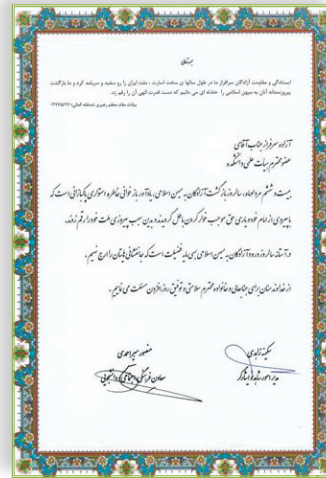 بسمه تعالی
ایستادگی و مقاومت آزادگان سرافراز ما در طول سالها ی سخت اسارت ، ملت ایران را رو سفید و سربلند کرد و ما بازگشت
پیروزمندانه آنان به میهن اسلامی را حادثه ای می دانیم که دست قدرت الهی آن را رقم زد.
بیانات مقام معظم رهبری (مدظله العالی)
آزاده سرفراز جناب آقای
عضو محترم هیات علمی دانشکده
بیست و ششم مرداد ماه، سالروز بازگشت آزادگان به میهن اسلامی، یادآور بازخوانی خاطره استواری پاکبازانی است که
با پیروی از امام خود و یاری حق موجب خوار کردن باطل گردیدند و بدین سبب پیروزی ملت خود را رقم زدند.
در آستانه سالروز ورود آزادگان به میهن اسلامی بسی مایه فضیلت است که جانفشانی هایتان را ارج نهیم.
از خداوند منان برای جنابعالی و خانواده محترم سلامتی و توفیق روز افزون مسئلت می نماییم.
سکینه زاهدی
مدیر امور شاهد و ایثارگر
منصور میراحمدی
معاون فرهنگی اجتماعی و دانشجویی